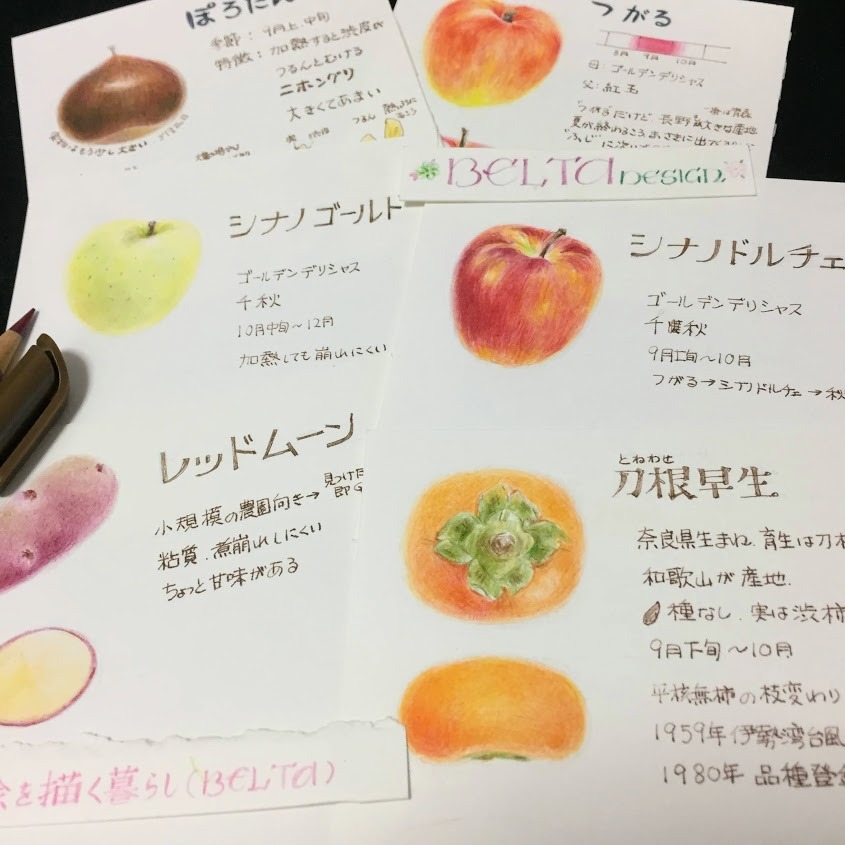 ぽろたん
季節：9月上.中旬
特徴：加熱すると渋皮が
つるんとむける
ニホングリ
大きくてあまい
実際はもう少し大きい
つがる
8月 9月 10月
母：ゴールデンデリシャス
父：紅玉
"つがる"だけど、長野も大きな産地
夏が終わるころ、あさきに出て
BELTA DESIGN
シナノゴールド
ゴールデンデリシャス
千秋
10月中旬〜12月
加熱しても崩れにくい
シナノドルチェ
ゴールデンデリシャス
千秋
9月中旬〜10月
つがる→シナノドルチェ→秋
レッドムーン
小規模の農園向き→見つけた
即G
粘質.煮崩れしにくい
ちょっと甘味がある
とねわせ
刀根早生
奈良県生まれ.育生は刀根
和歌山が産地.
種なし.実は渋柿
9月下旬〜10月
平核無柿の枝変わり
1959年伊勢湾台風
1980年 品種登録
絵を描く暮らし(BELTA)